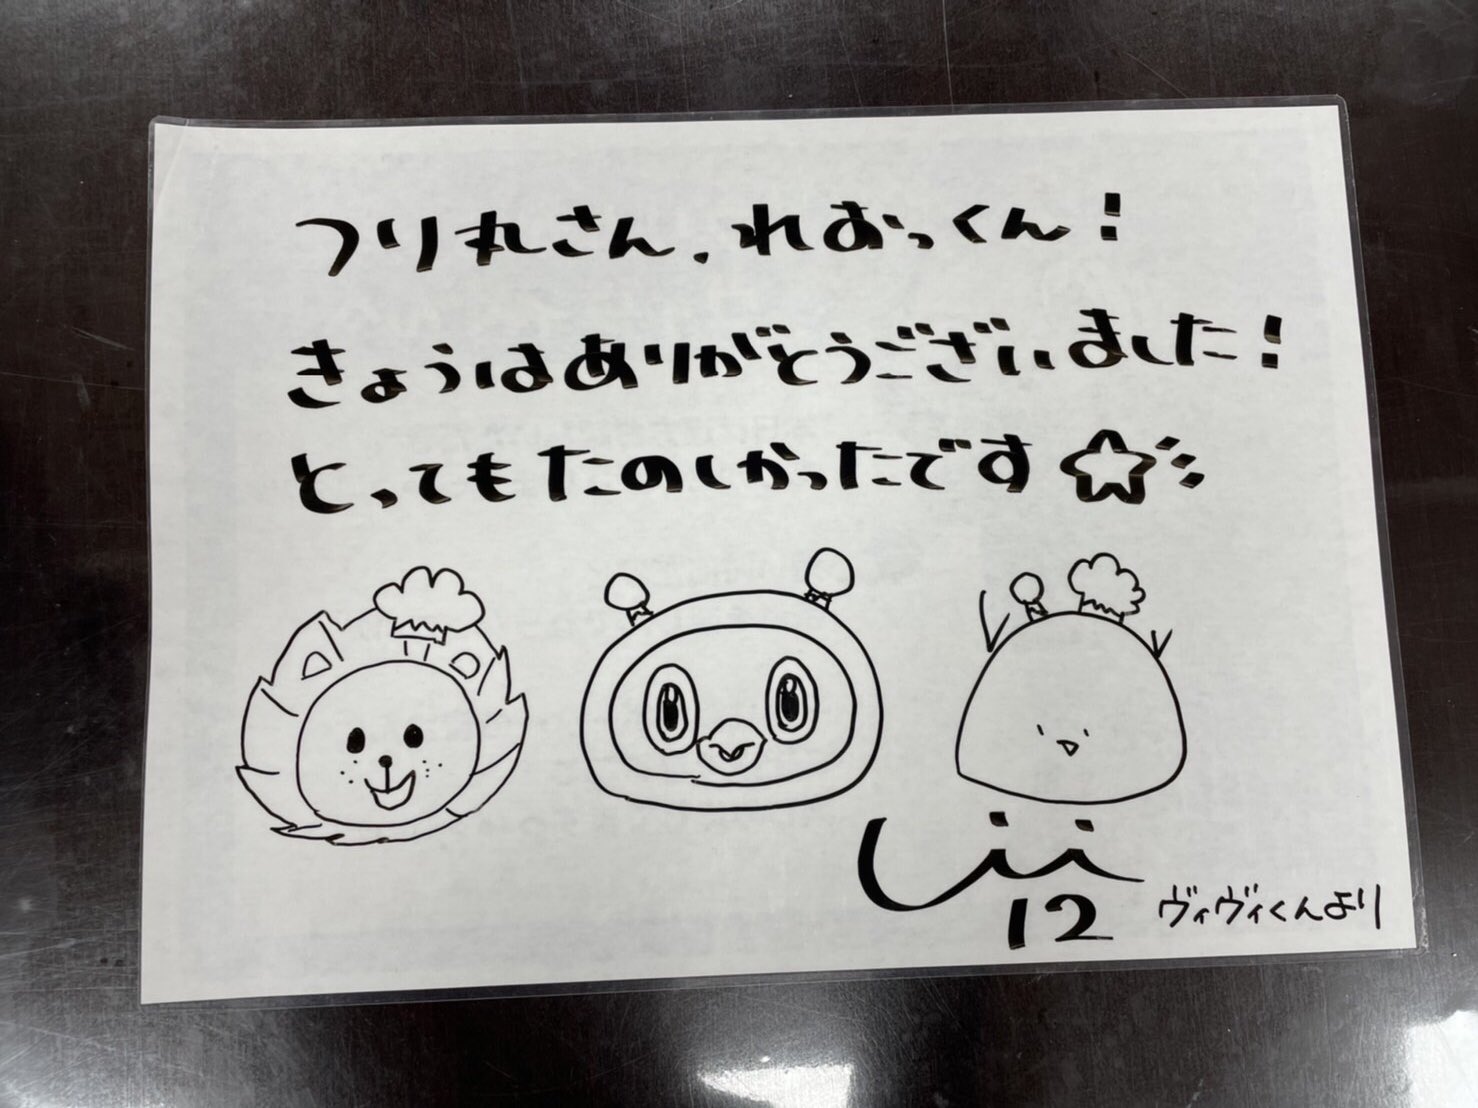 つり丸さん、れおっくん！
きょうはありがとうございました！
とってもたのしかったです☆
12
ヴィヴィくんより